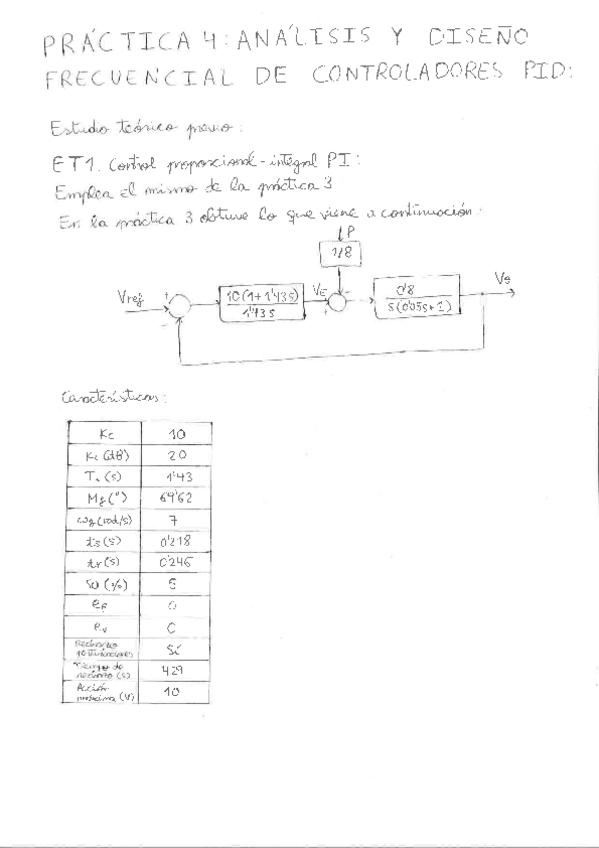 PRÁCTICA 4: ANÁLISIS Y DISEÑO
FRECUENCIAL DE CONTROLADORES PID:
Estudio teórico previo:
ET1. Control proporcional-integral PI:
Emplea el mismo de la práctica 3
En la práctica 3 obtuve lo que viene a continuación:
P
1/8
Vref
+
-
10(1+1'43s)
1'43s
VE
+
-
0'8
s(0'05s+1)
Vs
Características:
Kc 10
Kc (dB) 20
1'43
Mf (°) 69'62
ωg (rad/s) 7
ts (s) 0'218
tr (s) 0'246
SO (%) 5
ep 0
ev 0
Rechazo perturbaciones Sí
Tiempo de rechazo (s) 4'29
Acción máxima (V) 10